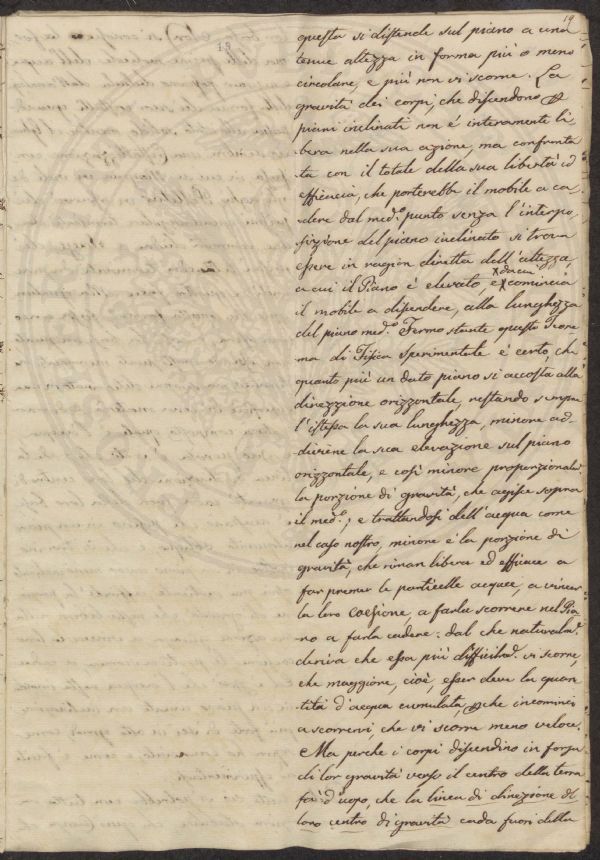 19
questa si distende sul piano a una
tenue altezza in forma più o meno
circolare, e più non vi scorre. La
gravità dei corpi, che discendono p
piani inclinati non é interamente li
bera nella sua azione, ma confronta
ta con il totale della sua libertà ed
efficacia, che porterebbe il mobile a ca
dere dal med.o punto senza l'interpo,
sizione del piano inclinato si trova
essere in ragion diretta dell'altezza,
a cui il Piano è elevato, e comincia
il mobile a discendere, alla lunghezza
del piano med.o Fermo stante questo Teore
ma di Fisica Sperimentale è certo, che
quanto più un dato piano si accosta alla
direzzione orizzontale, restando sempre
l'istessa la sua lunghezza, minore ad-
diviene la sua elevazione sul piano
orizzontale, e così minore proporzional.e
la porzione di gravità, che agisce sopra
il med.o; e trattandosi dell'acqua come
nel caso nostro, minore è la porzione di
gravità, che riman libera ed efficace a
far premer le particelle acquee, a vincer
la loro coesione, a farla scorrere nel Pia
no a farla cadere: dal che naturalm.e
deriva che essa più difficilm.e vi scorre,
che maggiore, cioè, esser deve la quan
tità d'acqua cumulata, pche incominci
a scorrervi, che vi scorra meno veloce.
Ma perche i corpi discendino in forza
di lor gravità verso il centro della terra
fà d'uopo, che la linea di direzione di
loro centro di gravità cada fuori della